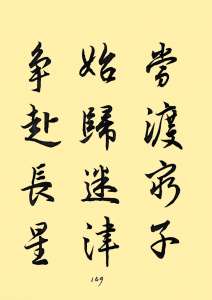 當渡窮子
始歸迷津
爭赴長星
149